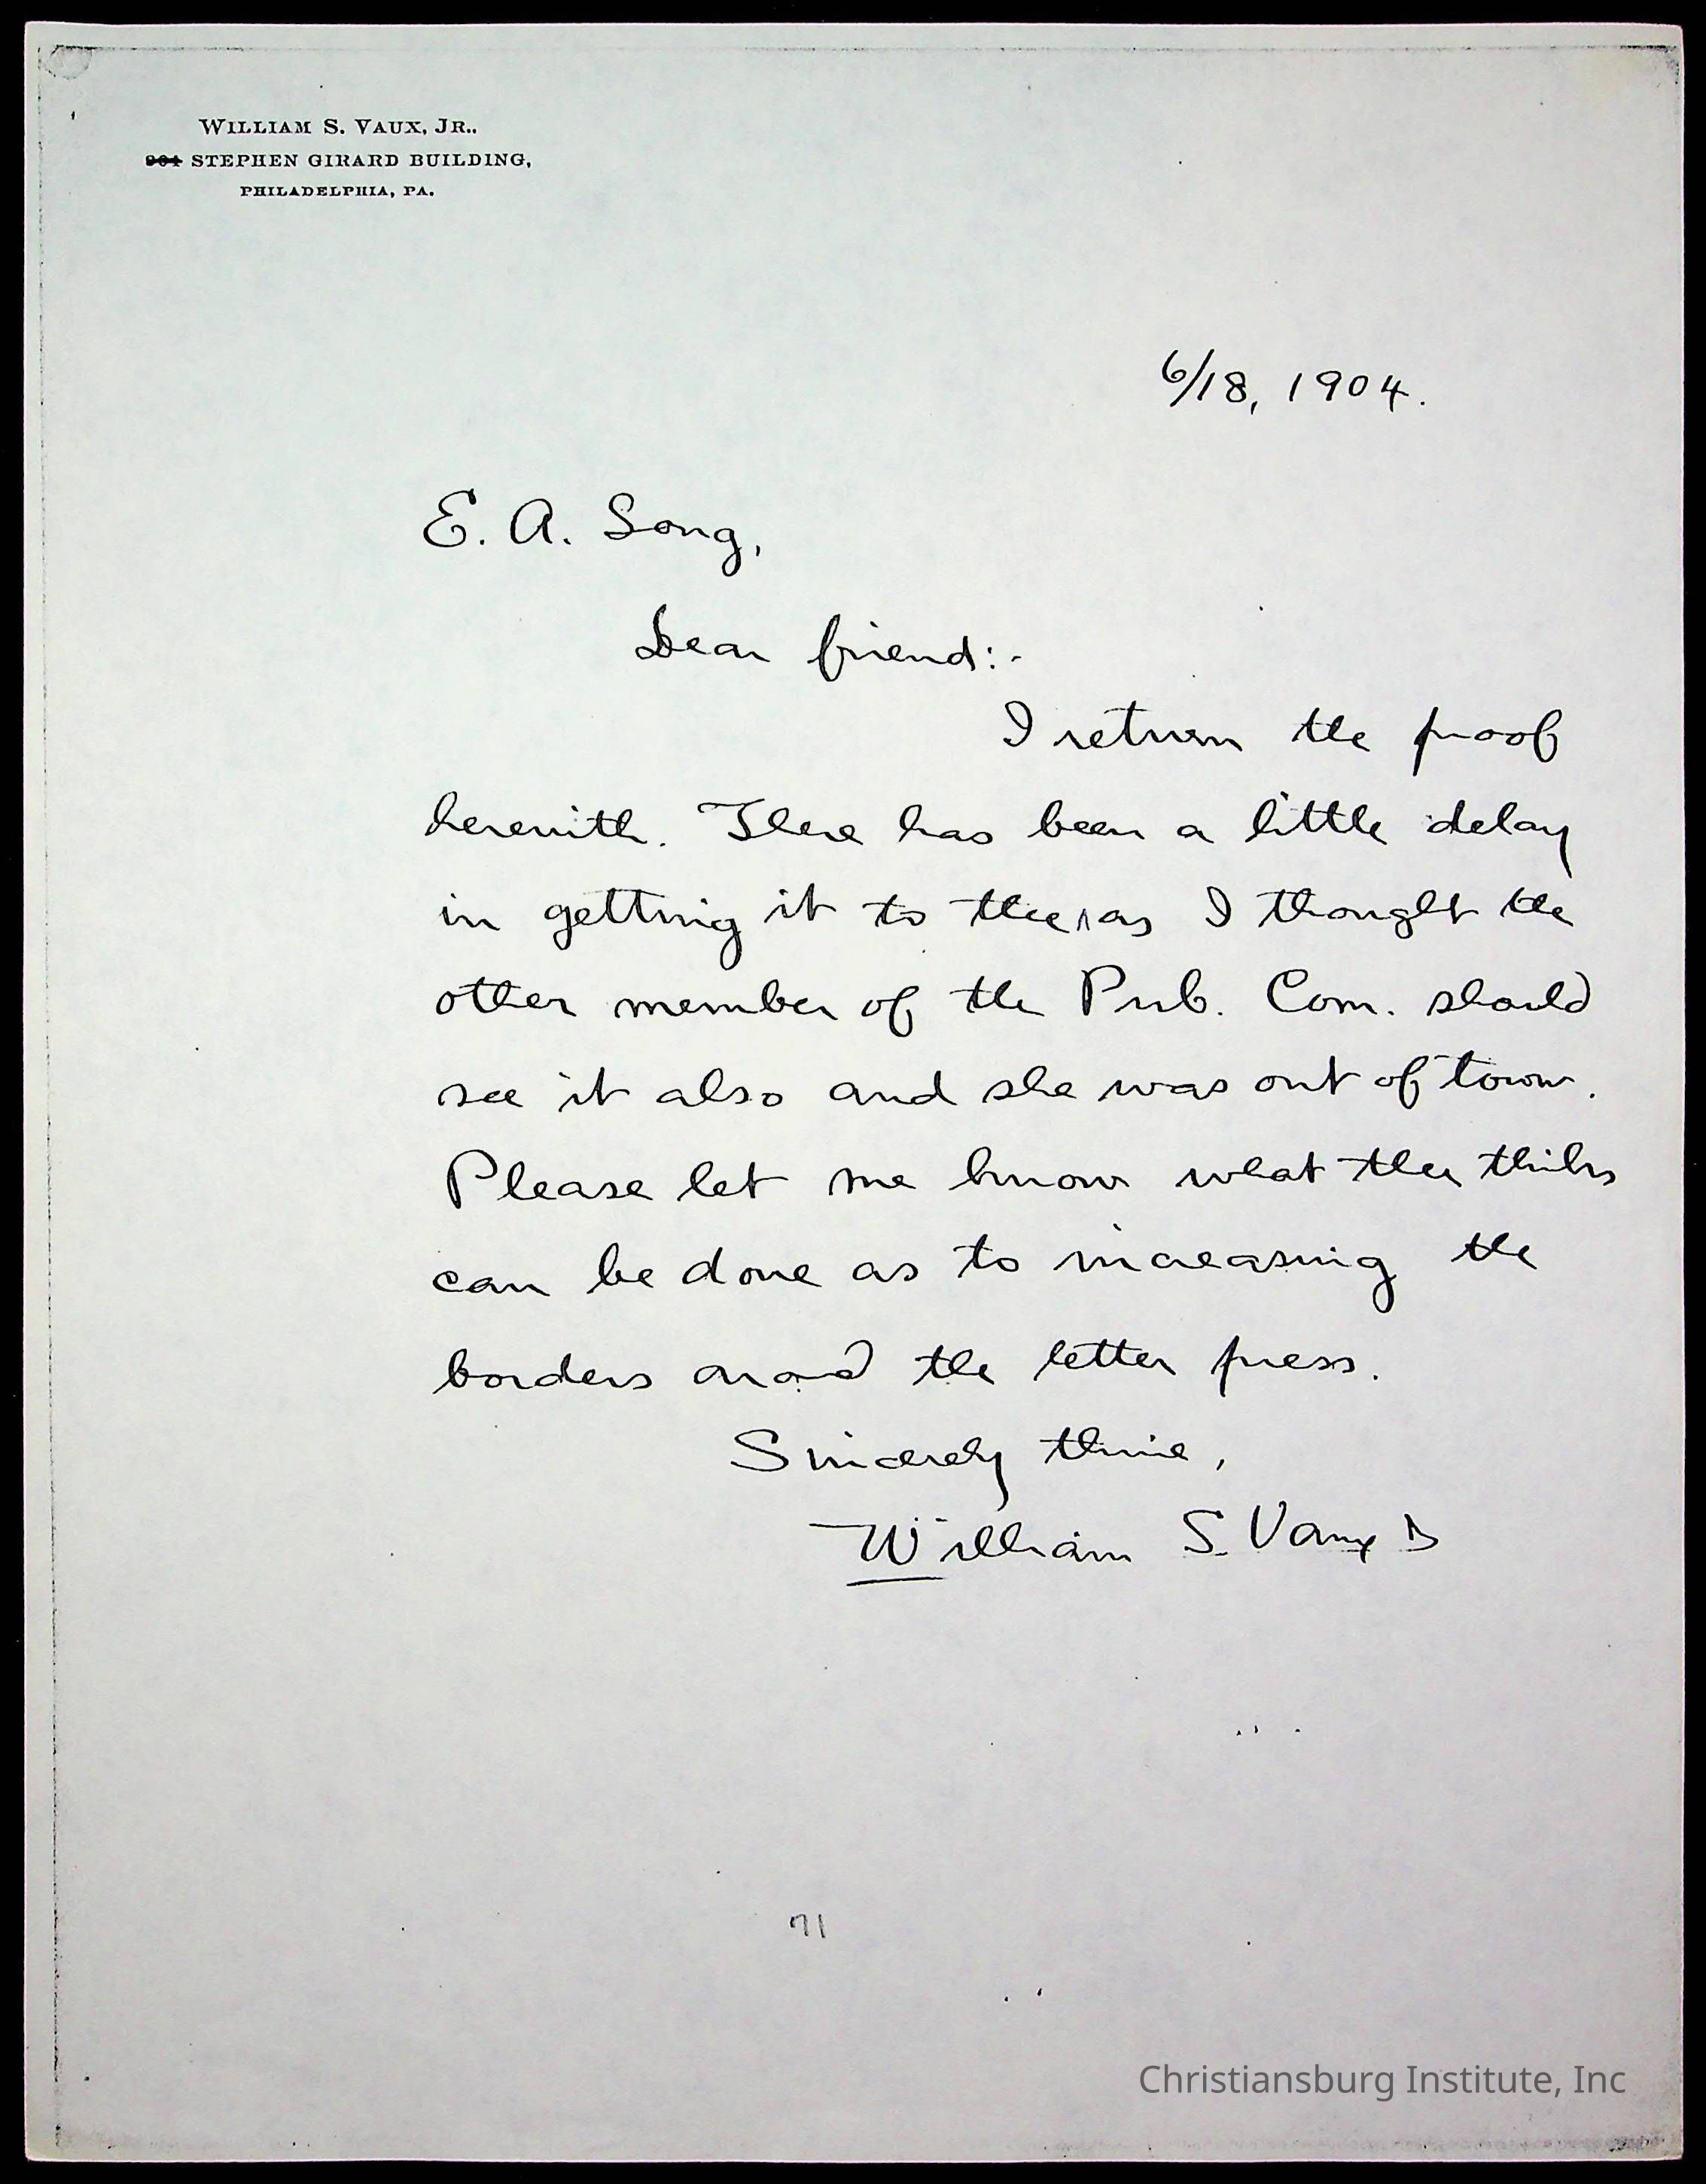 WILLIAM S. VAUX, JR.,
901 STEPHEN GIRARD BUILDING,
PHILADELPHIA, PA.
6/18, 1904.
E. A. Long,
Dear friend:-
I return the proof
herewith. There has been a little delay
in getting it to thee, as I thought the
other member of the Pub. Com. should
see it also and she was out of town.
Please let me know what thee thinks
can be done as to increasing the
borders around the letter press.
Sincerely thine,
William S. Vaux Jr
71
Christiansburg Institute, Inc